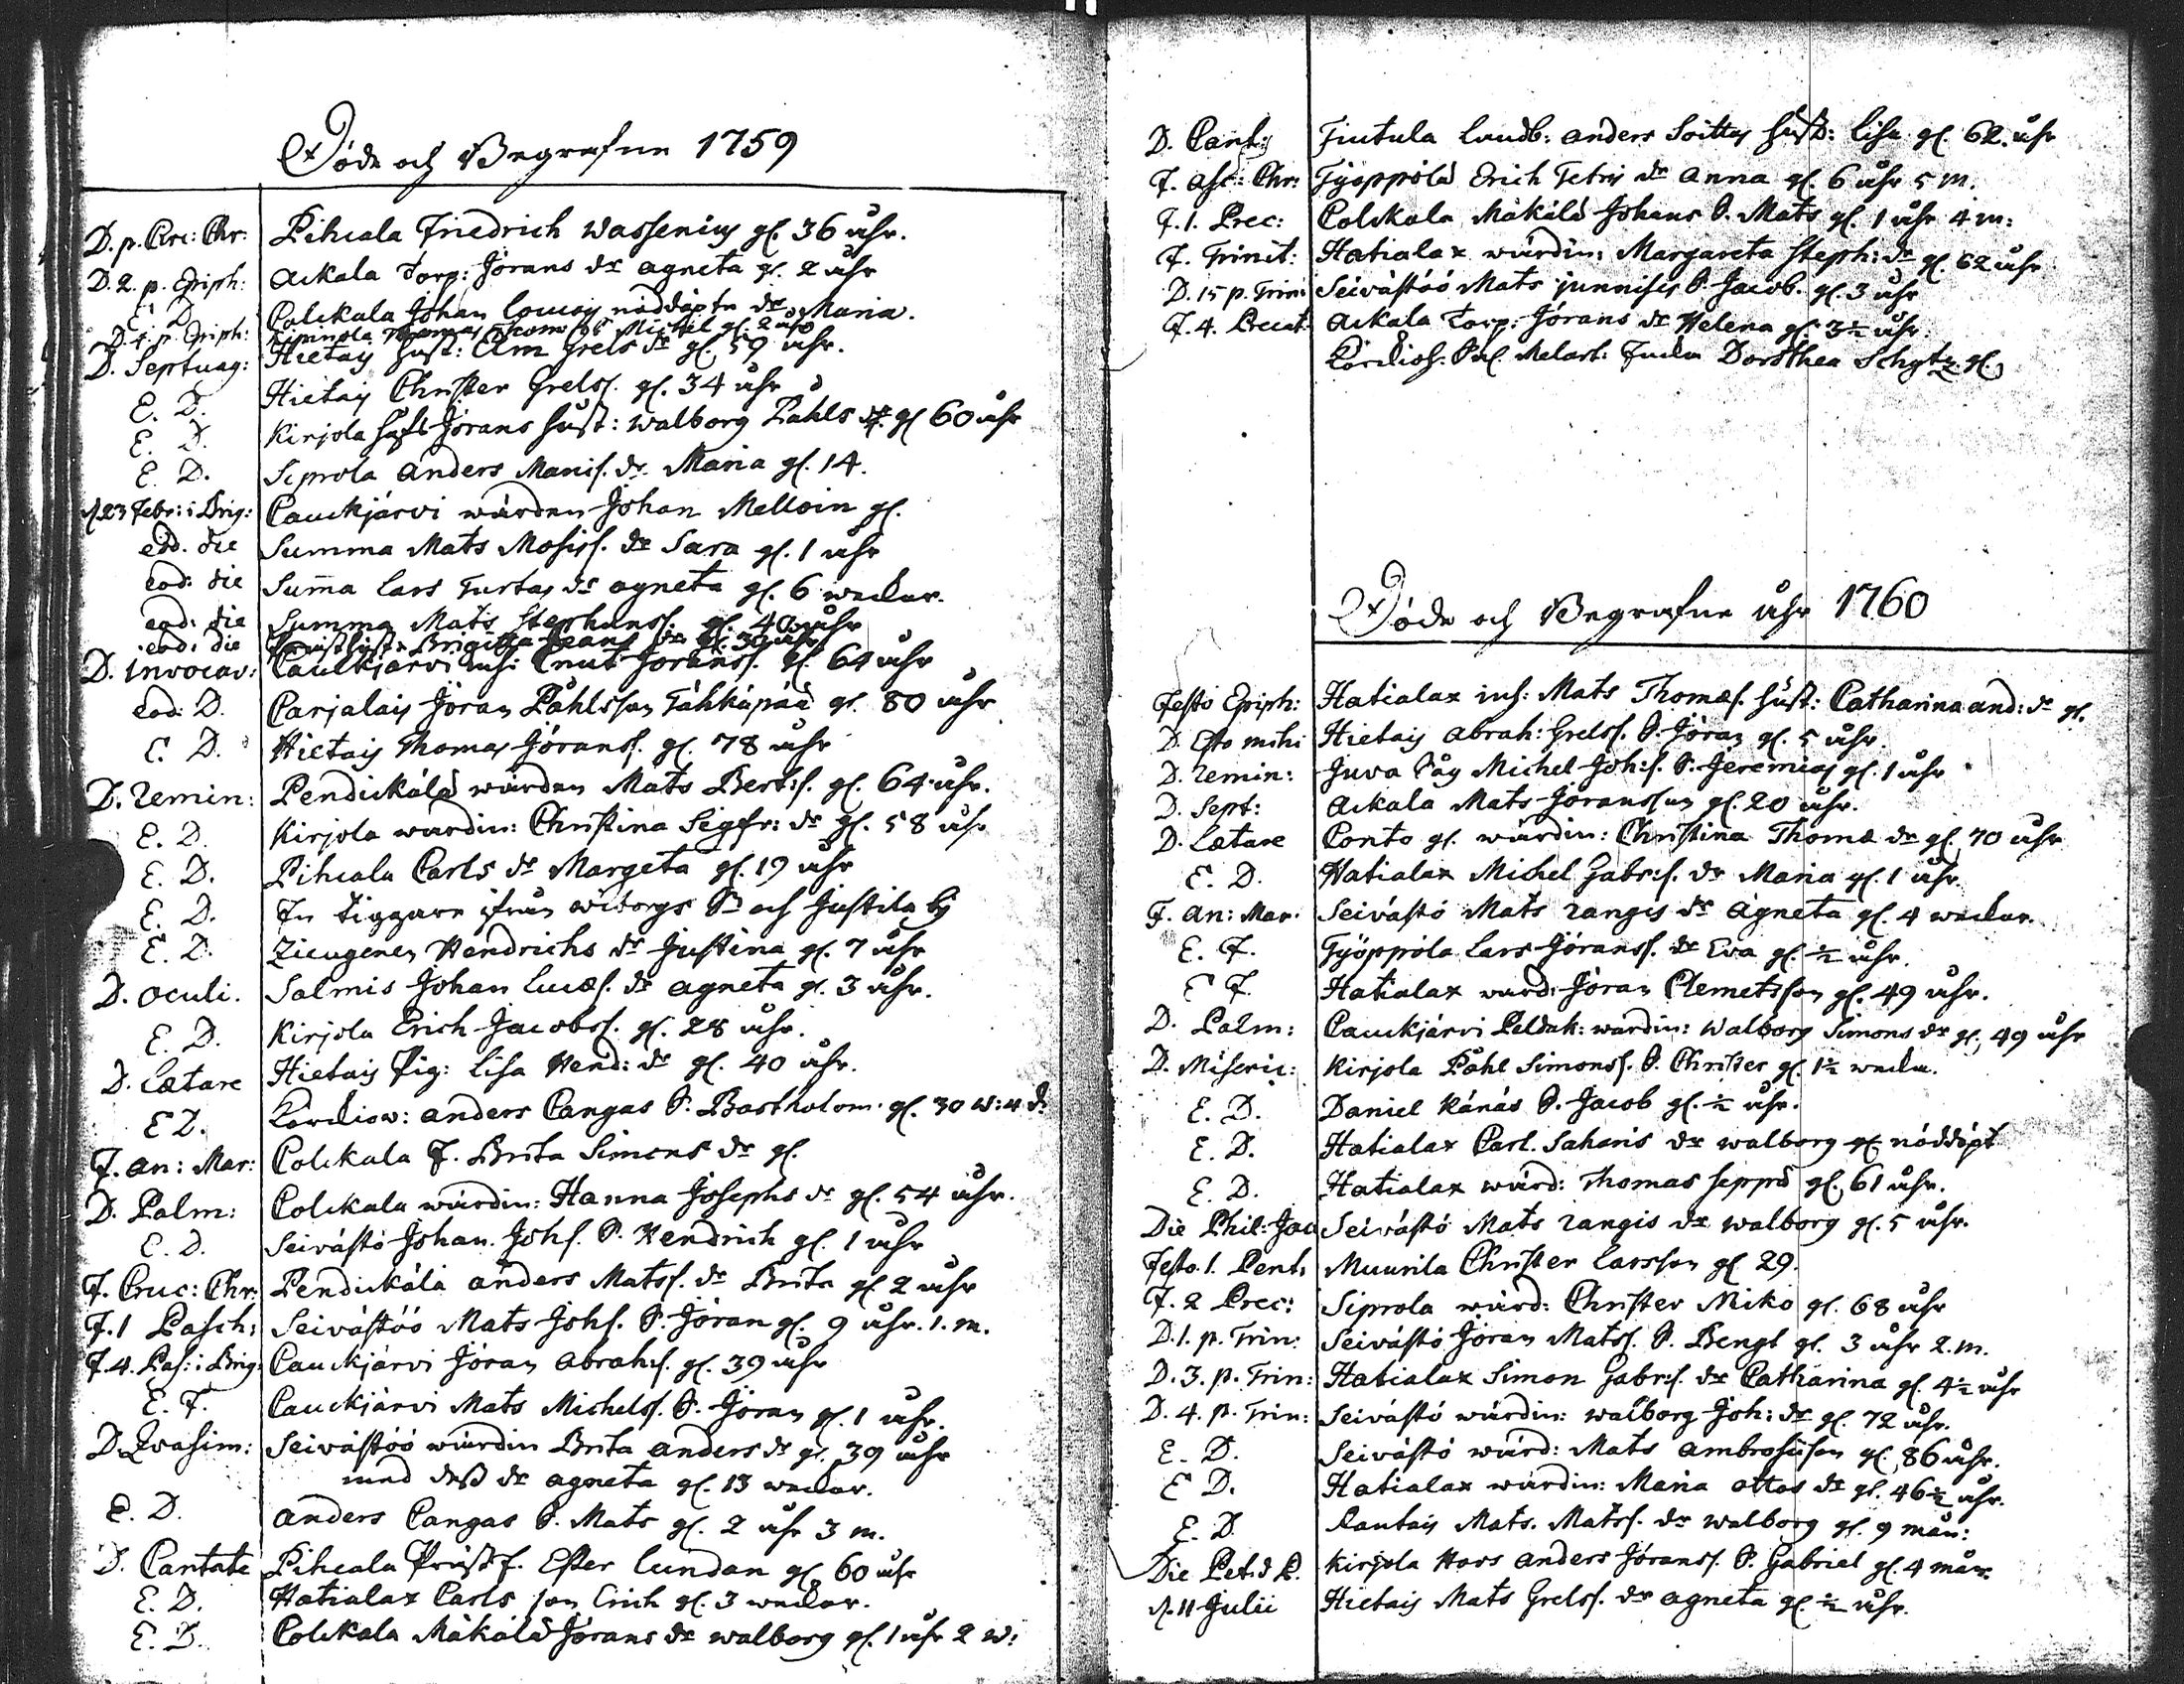 Döde och Begrafne 1759
D. p. Circ: Chr: Pihcala Friedrich Wassenius gl. 36 åhr.
D. 2. p. Epiph: Ackala Torp: Jörans dr Agneta gl. 2 åhr
E D. Colckala Johan nöddöpte dr Maria.
D. 4. p. Epiph: Michel gl. 2 åhr
D. Septuag: Hietais Hust: Elin Grels dr gl. 59 åhr.
E. D. Hietais Christer Grelss. gl. 34 åhr
E. D. Kirjola Jörans Hust: Walborg Påhls dr. gl 60 åhr
E. D. Seprola Anders Manis. dr. Maria gl. 14.
d. 23 Febr: i Brig: Cauckjärvi wärden Johan Melloin gl.
eod. die Summa Mats Mosiss. dr Sara gl. 1 åhr
eod: die Suma Lars Turtas dr Agneta gl. 6 weckor.
eod: die Summa Mats Stephanss. gl. 40 åhr
eod: die Brigitta dr gl. 30 åhr
D. Invocav: Cauckjärvi inh: Cnut Jöranss. gl. 64 åhr
eod: D. Carjalais Jöran Påhlsson Tähkäpää gl. 80 åhr
E. D. Hietais Thomas Jöranss. gl. 78 åhr
D. Remin: Pendickälä wärden Mats Bert:s. gl. 64 åhr.
E. D. Kirjola wärdin: Christina Sigfr: dr gl. 58 åhr
E. D. Pihcala Carls dr Margeta gl. 19 åhr
E. D. En Tiggare ifrån Wiborgs Sn och Justila by
E. D. Zieugenes Hendrichs dr Justina gl. 7 åhr
D. Oculi. Salmis Johan Lucæs. dr Agneta gl. 3 åhr.
E. D. Kirjola Erich Jacobss. gl. 28 åhr.
D. Lætare Hietais Pig: Lisa Hend: dr gl. 40 åhr.
E D. Kordiow: Anders Cangas S. Bartholom: gl. 30 W: 4 d.
F. An: Mar: Colckala F. Brita Simons dr gl.
D. Palm: Colckala wärdin: Hanna Josephs dr gl. 54 åhr.
E. D. Seivästö Johan. Johs. S. Hendrich gl. 1 åhr
F. Cruc: Chr: Pendickälä Anders Matss. dr Brita gl 2 åhr
F. 1 Pasch: Seivästöö Mats Johs. S. Jöran gl. 9 åhr. 1. m.
F. 4. Pas: i Brig: Cauckjärvi Jöran Abrah:s. gl. 39 åhr
E. F. Cauckjärvi Mats Michelss. S. Jöran gl. 1 åhr.
D. Qvasim: Seivästöö wärdin Brita Anders dr gl. 39 åhr
med dess dr Agneta gl. 13 weckor.
E. D. Anders Cangas S. Mats gl. 2 åhr 3 m.
D. Cantate Pihcala Ester Lundan gl. 60 åhr
E. D. Hatialax Carls son Erich gl. 3 weckor.
E. D. Colckala Mäkälä Jörans dr Walborg gl. 1 åhr 2 W:
D. Cant: Tiutula Landb: Anders Soittus Hust: Lisa gl. 62. åhr
F. Asc: Chr: Työppölä Erich Tetris dr Anna gl. 6 åhr 5 m.
F. 1. Prec: Colckala Mäkälä Johans S. Mats gl. 1 åhr 4 m:
F. Trinit: Hatialax wärdin: Margareta Steph: dr gl. 62 åhr
D. 15 p. Trin: Seivästöö Mats Junnisis S. Jacob. gl. 3 åhr
F. 4. Precat: Ackala Torp: Jörans dr Helena gl. 3½ åhr.
Kordios: Sal. Melart: Encka Dorothea Schytz. gl.
Döde och Begrafne åhr 1760
Festo Epiph: Hatialax inh: Mats Thomæs. Hust: Catharina And: dr gl.
D. Esto mihi Hietais Abrah: Grelss. S. Jöran gl. 5 åhr.
D. Remin: Juva Såg Michel Joh:s. S. Jeremias gl. 1 åhr
D. Sept: Ackala Mats Jöransson gl. 20 åhr.
D. Lætare Conto gl. wärdin: Christina Thomæ dr gl. 70 åhr
E. D. Hatialax Michel Gabr:s. dr Maria gl. 1 åhr.
F. An: Mar. Seivästö Mats Rangis dr Agneta gl. 4 weckor.
E. F. Työppölä Lars Jöranss. dr Eva gl. ½ åhr.
E F. Hatialax wärd: Jöran Clemetsson gl. 49 åhr.
D. Palm: Cauckjärvi Peldak: wärdin: Walborg Simons dr gl. 49 åhr
D. Miseric: Kirjola Påhl Simonss. S. Christer gl. 1½ wecka.
E. D. Daniel Känäs S. Jacob gl. ½ åhr.
E. D. Hatialax Carl. Saharis dr Walborg gl. nöddöpt
E. D. Hatialax wärd: Thomas Seppä gl. 61 åhr.
Die Phil: Jac Seivästö Mats Rangis dr Walborg gl. 5 åhr.
Festo. 1. Pent: Muurila Christer Larsson gl 29.
F. 2 Prec: Siprola wärd: Christer Miko gl. 68 åhr
D. 1. p. Trin: Seivästö Jöran Matss. S. Bengt gl. 3 åhr 2. m.
D. 3. p. Trin: Hatialax Simon Gabr:s. dr Catharina gl. 4½ åhr
D. 4. p. Trin: Seivästö wärdin: Walborg Joh: dr gl. 72 åhr.
E. D. Seivästö wärd: Mats Ambrosiison gl. 86 åhr.
E D. Hatialax wärdin: Maria Ottos dr gl. 46½ åhr.
E. D. Rautais Mats. Matss. dr Walborg gl. 9 mån:
Die Pet. & P. Kirjola Hars Anders Jöranss. S. Gabriel gl. 4 mån.
d. 11 Julii Hietais Mats Grelss. dr Agneta gl. ½ åhr.